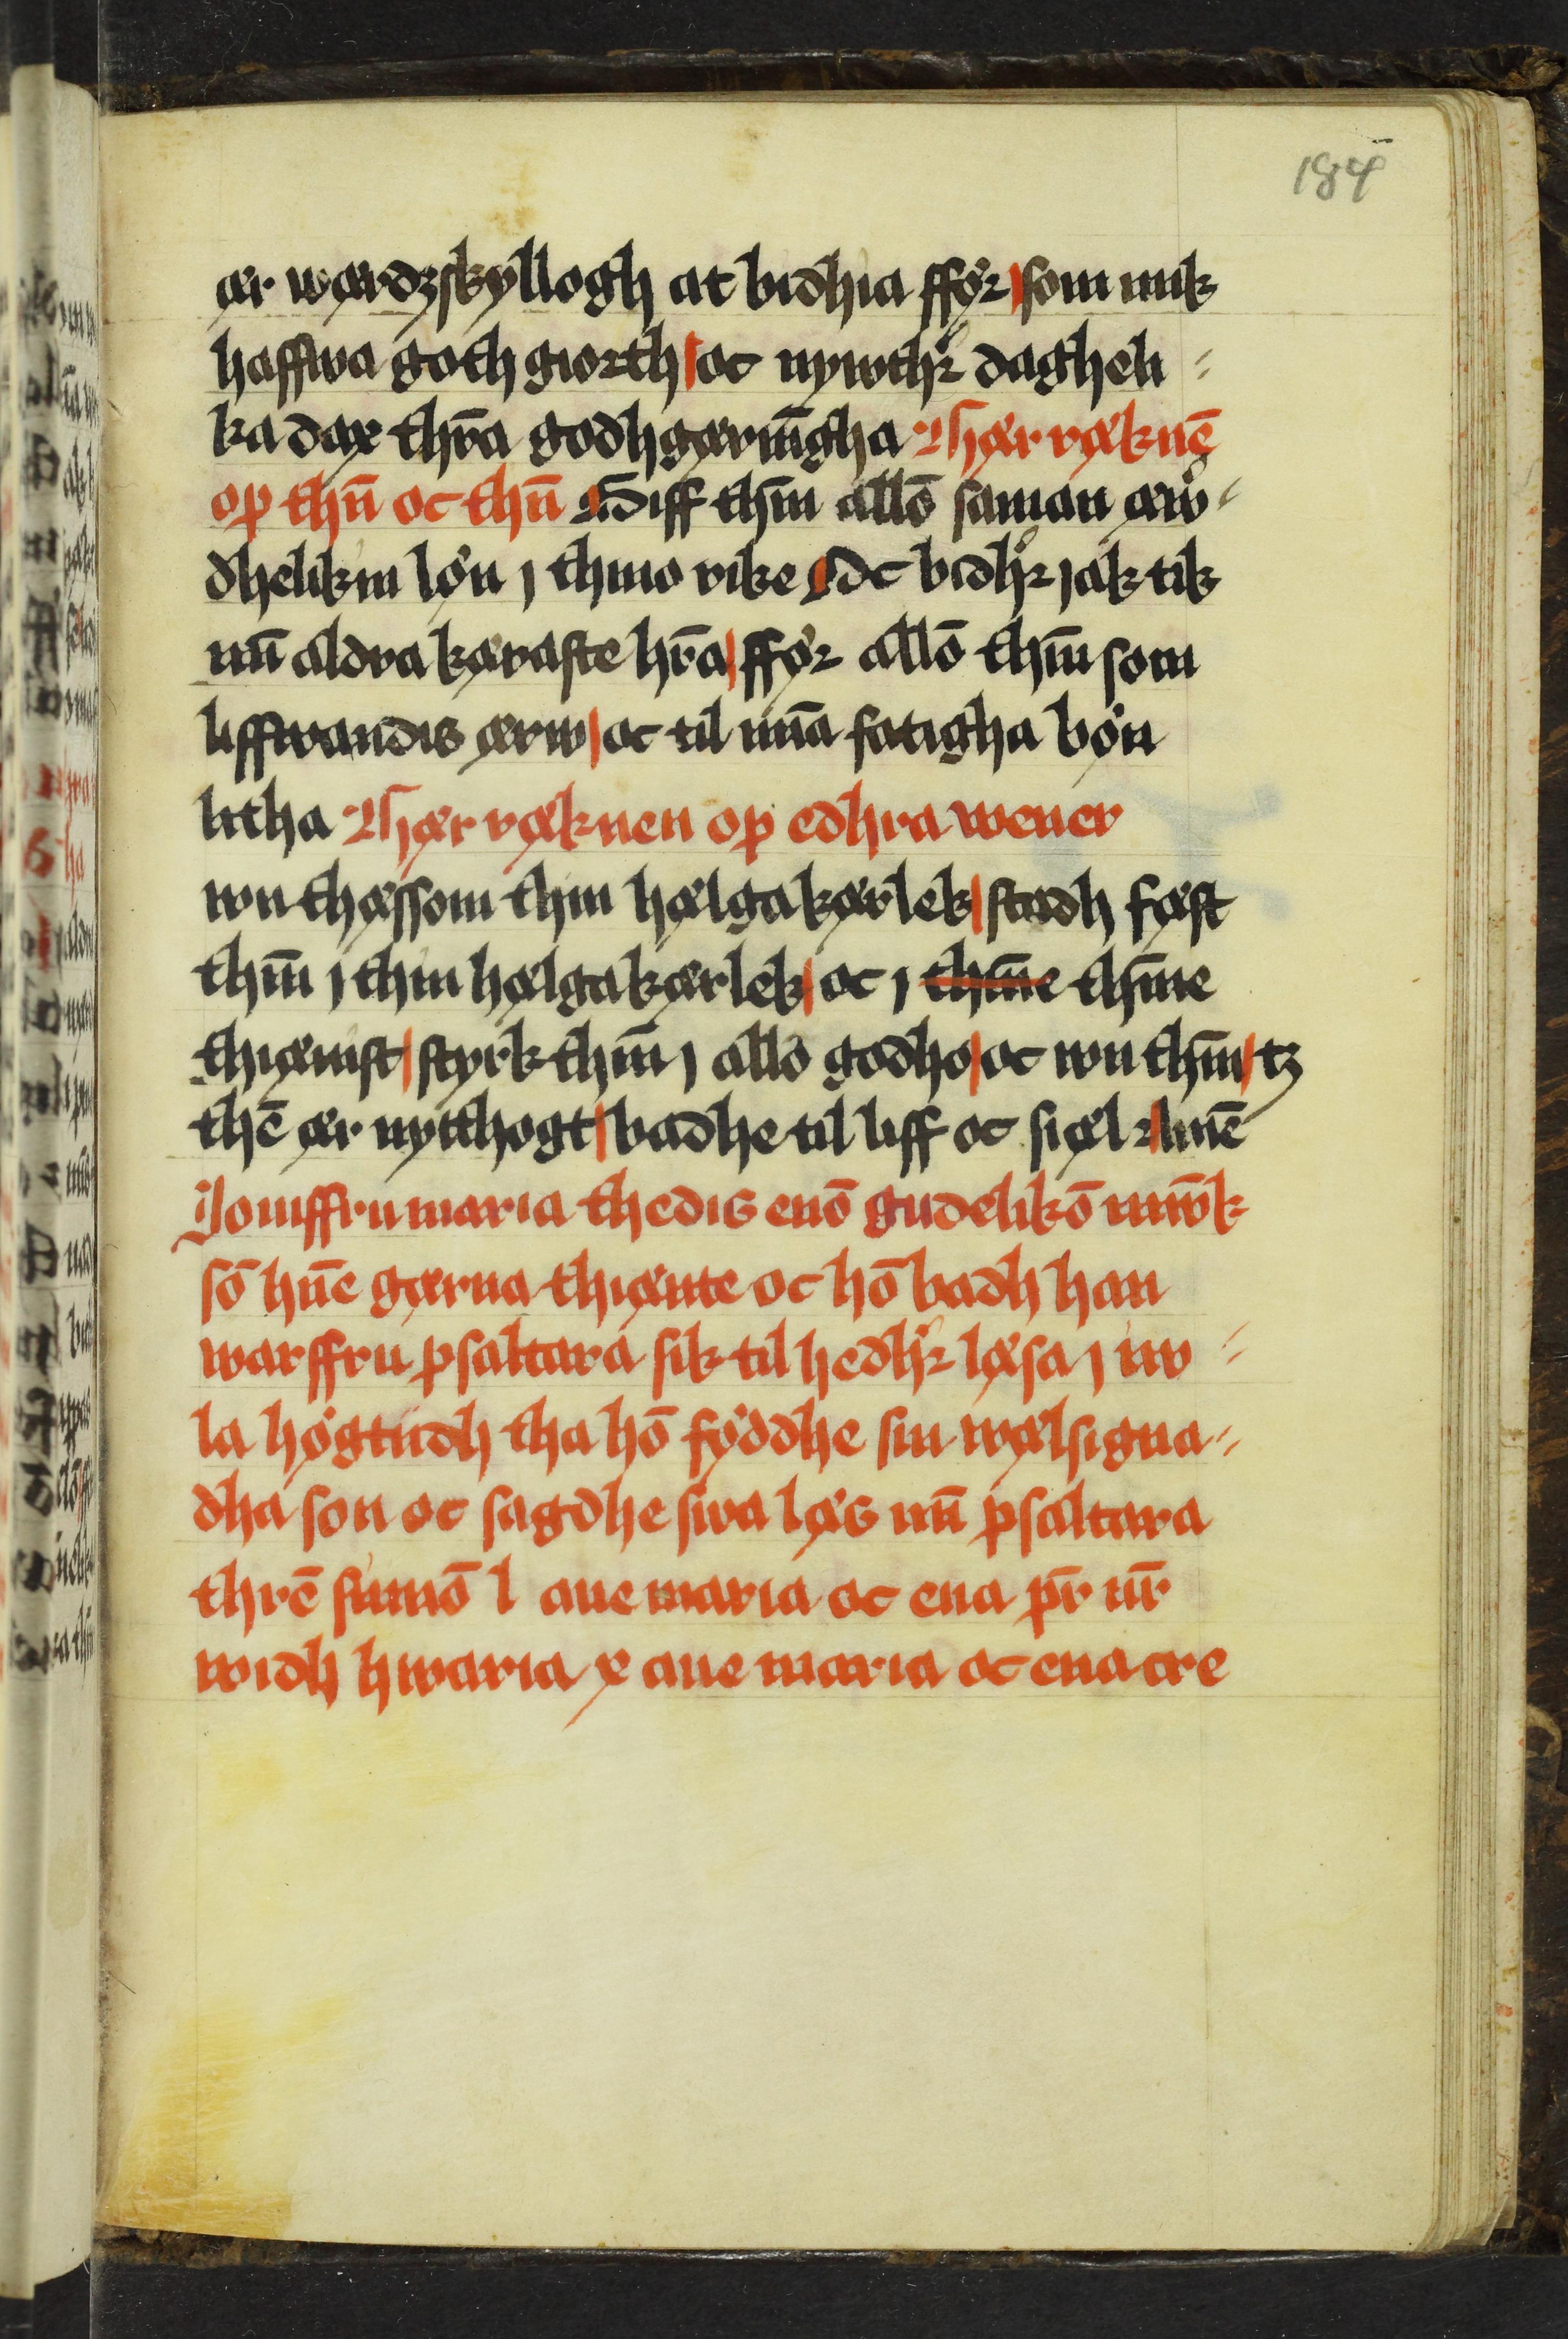 184
ær wærdzskyllogh at bidhia ffør som mik
haffwa goth giorth oc nywthr dagheli
ka dax thr̄a godhgærnīgha Thær ræknē
op thn̄ oc thn̄ Giff thm̄ allō saman æw
dhelikin løn j thino rike Oc bidhr jak tik
min̄ aldra kæraste hr̄a ffør allō thm̄ som
liffwandis ærw oc til mīa fatigha bøn
litha Thær ræknen op edhra wener
wn thæssom thin hælga kærlek stadh fæst
thm̄ j thin hælga kærlek oc j thīne thīne
thiænist styrk thm̄ j allo godho oc wn thm̄ tz
thē ær nytthogt badhe til liff oc siæl amē
Jomffru maria thedis enō gudelikō mwk
sō hn̄e gærna thiænte oc hō badh han
war ffru psaltara sik til hedhr læsa j iw
la høgtiidh tha hō føddhe sin wælsigna
dha son oc sagdhe swa læs min̄ psaltara
thrē sinnō l aue maria oc ena pr̄ nr̄
widh hwaria x aue maria oc ena cre